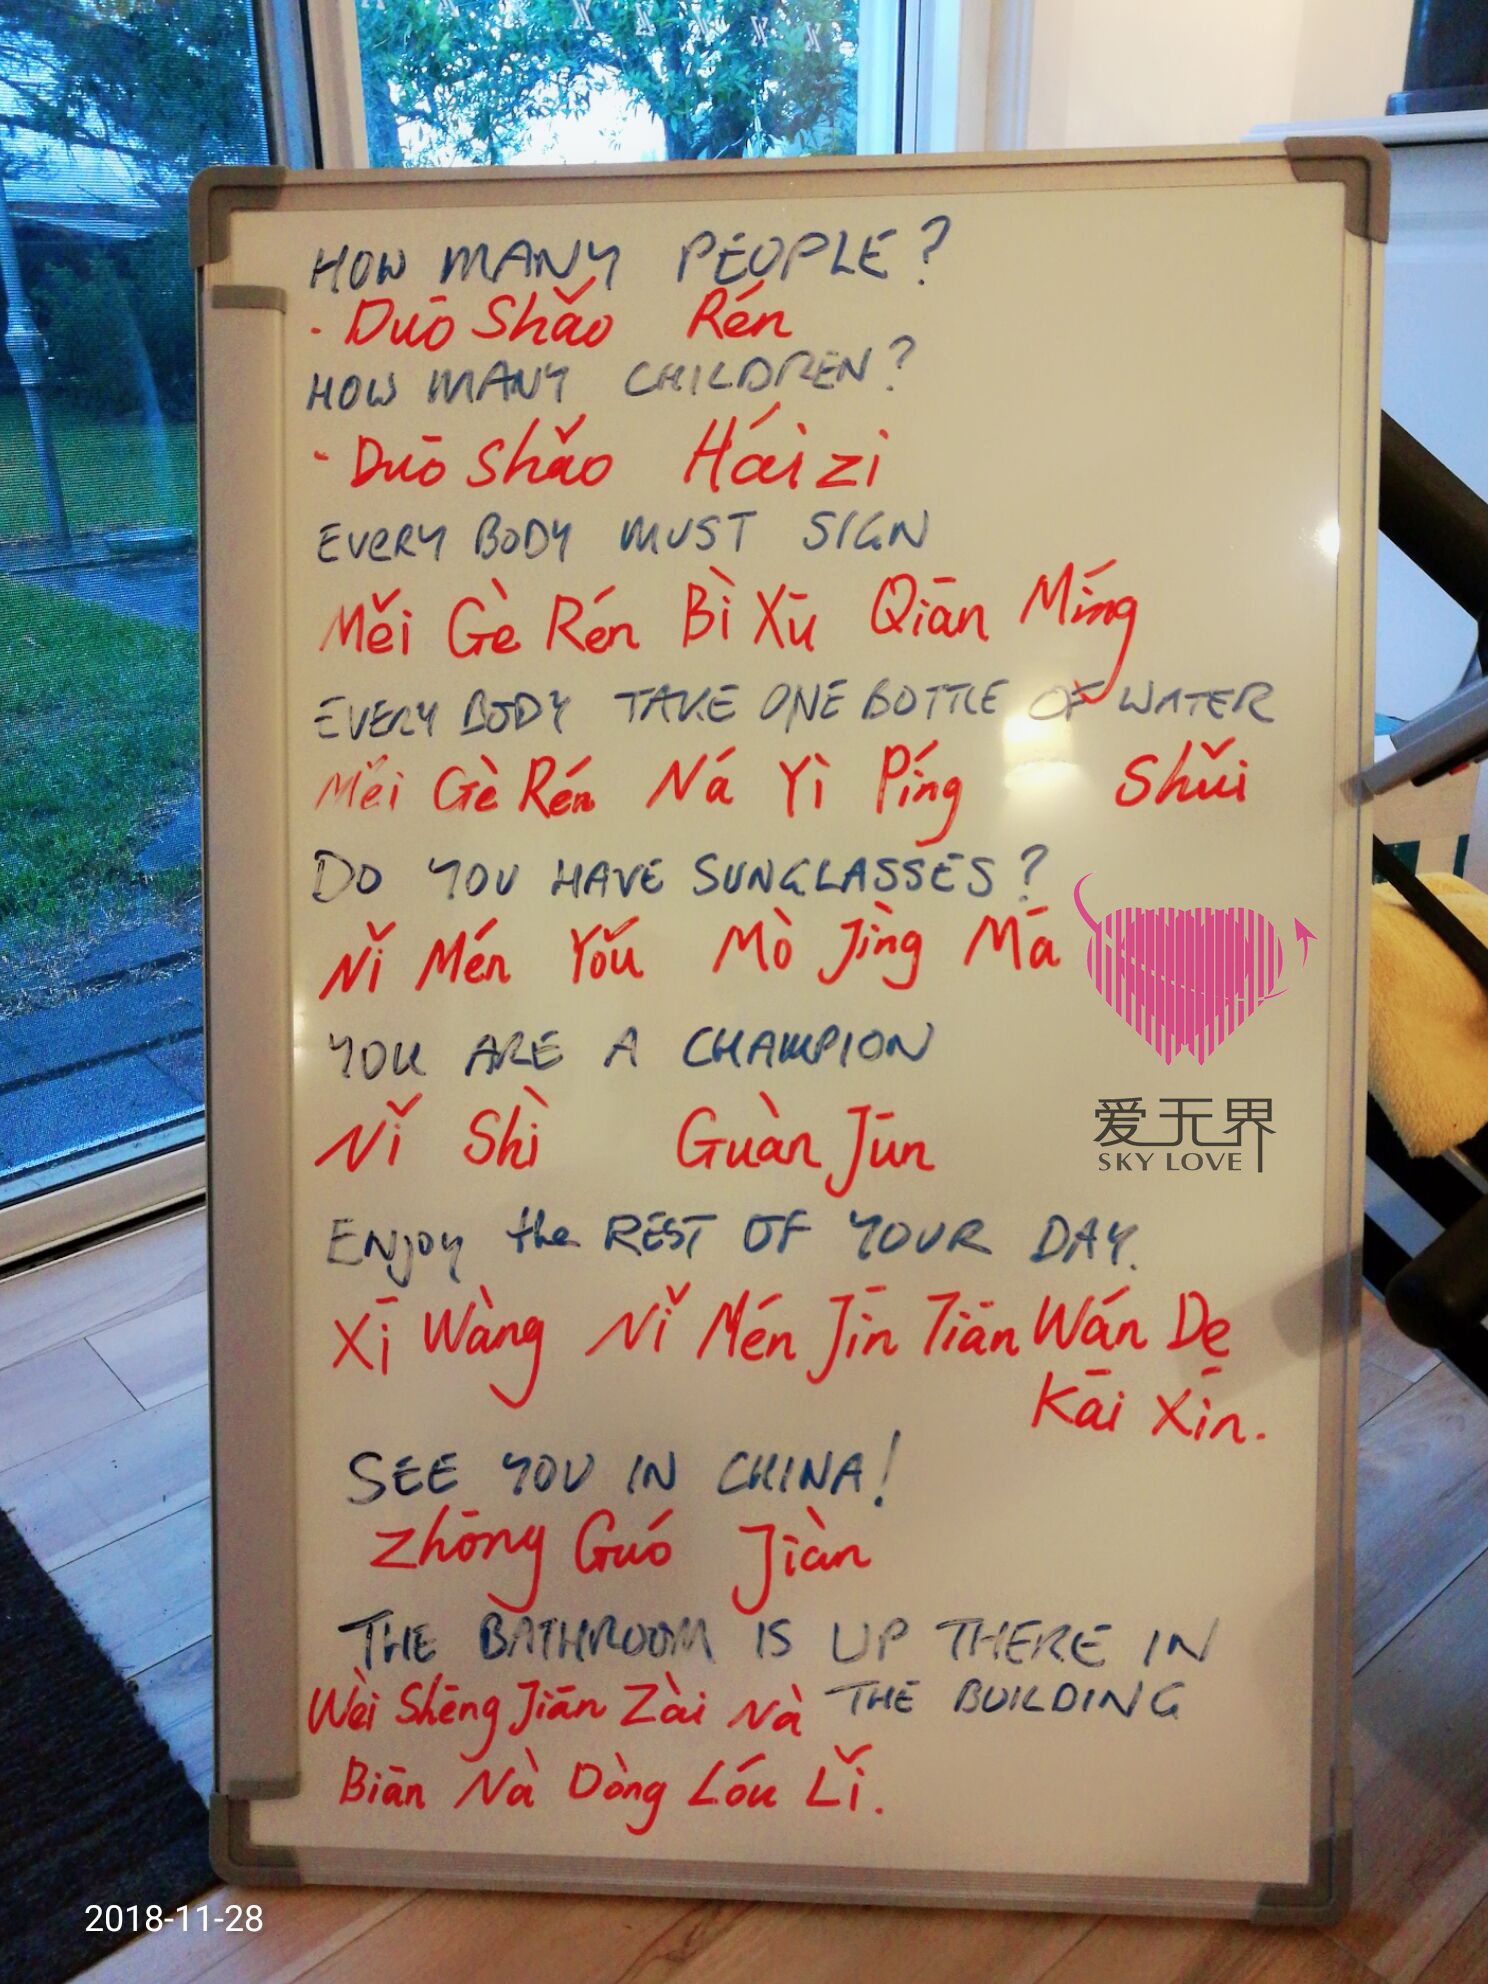 HOW MANY PEOPLE?
- Duō Shǎo Rén
HOW MANY CHILDREN?
- Duō Shǎo Hái zi
EVERY BODY MUST SIGN
Měi Gè Rén Bì Xū Qiān Míng
EVERY BODY TAKE ONE BOTTLE OF WATER
Měi Gè Rén Ná Yì Píng Shuǐ
DO YOU HAVE SUNGLASSES?
Nǐ Mén Yǒu Mò Jìng Mā
YOU ARE A CHAMPION
Nǐ Shì Guàn Jūn
爱无界
SKY LOVE
ENJOY the REST OF YOUR DAY.
Xī Wàng Nǐ Mén Jīn Tiān Wán De
Kāi Xīn.
SEE YOU IN CHINA!
Zhōng Guó Jiàn
THE BATHROOM IS UP THERE IN
THE BUILDING
Wèi Shēng Jiān Zài Nà
Biān Nà Dòng Lóu Lǐ.
2018-11-28